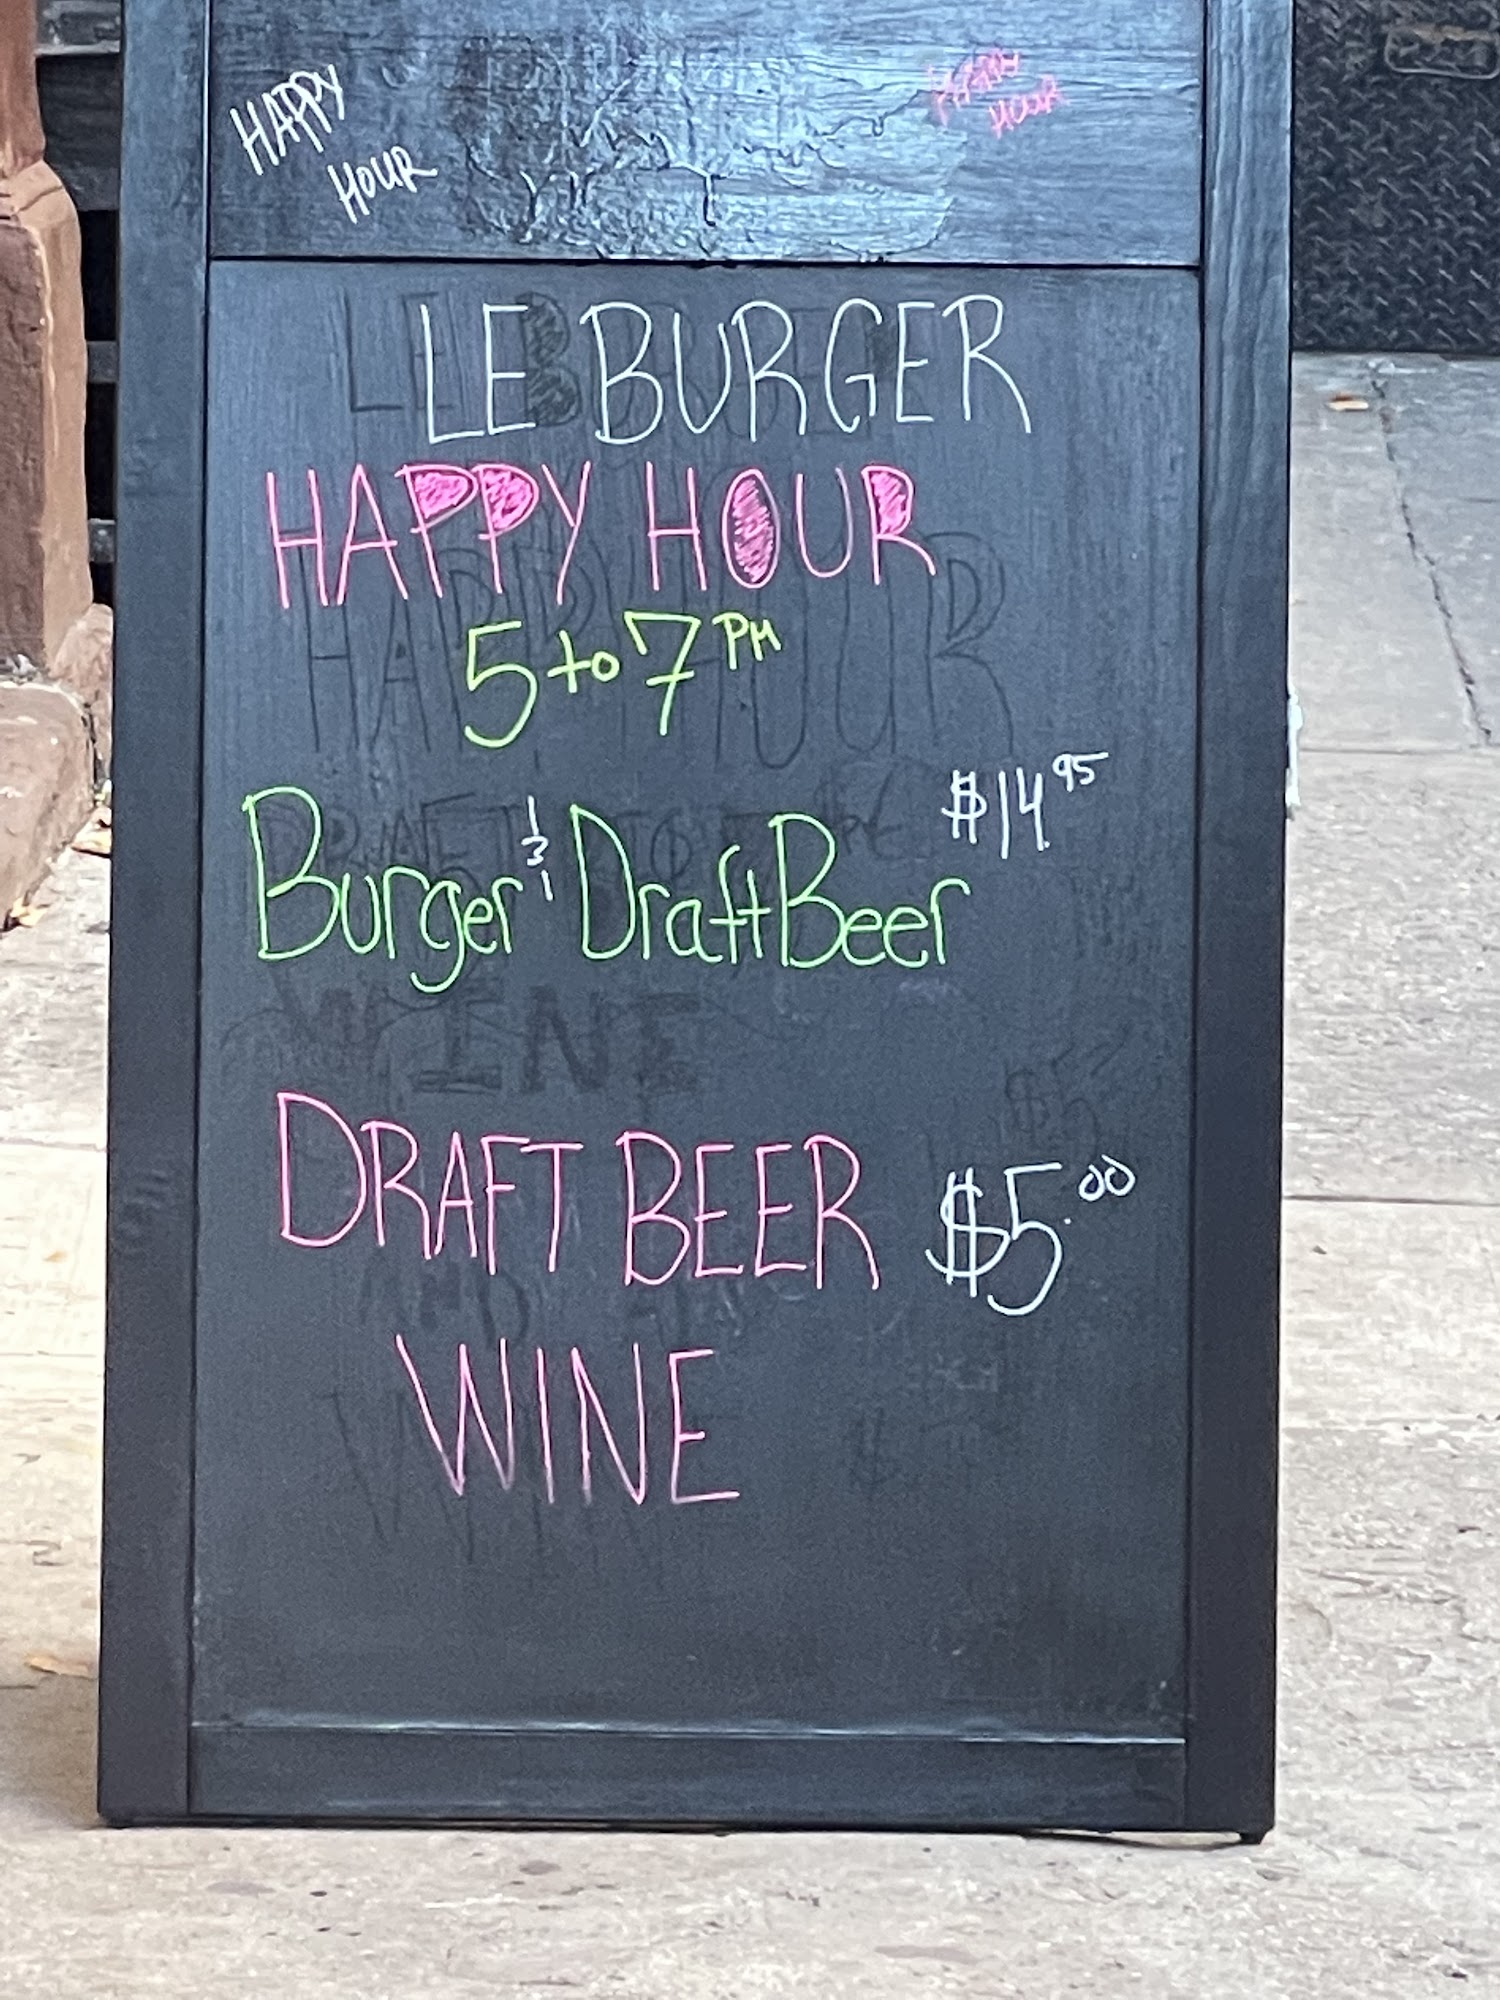 HAPPY
HOUR
HAPPY
HOUR
LE BURGER
HAPPY HOUR
5 to 7 PM
$14.95
Burger & Draft Beer
DRAFT BEER $5.00
WINE